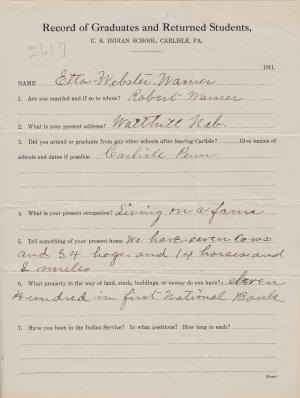 Record of Graduates and Returned Students,
U. S. INDIAN SCHOOL, CARLISLE, PA.
2617
1911.
NAME Etta Webster Warner
1. Are you married and if so to whom? Robert Warner
2. What is your present address? Watthill Neb.
3. Did you attend or graduate from any other schools after leaving Carlisle? Give names of
schools and dates if possible Carlisle Penn
4. What is your present occupation? Living on a farm
5. Tell something of your present home. We have seven cows
and 34 hogs. and 14 horses and
2 mules
6. What property in the way of land, stock, buildings, or money do you have? eleven
Hundred in first National Bank
7. Have you been in the Indian Service? In what positions? How long in each?
(Over)